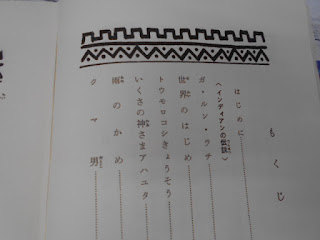 もくじ
はじめに
〈インディアンの伝説〉
ガ・ルン・ラチ
世界のはじめ
トウモロコシきょうそう
いくさの神さまアハユタ
雨のかめ
クマ男